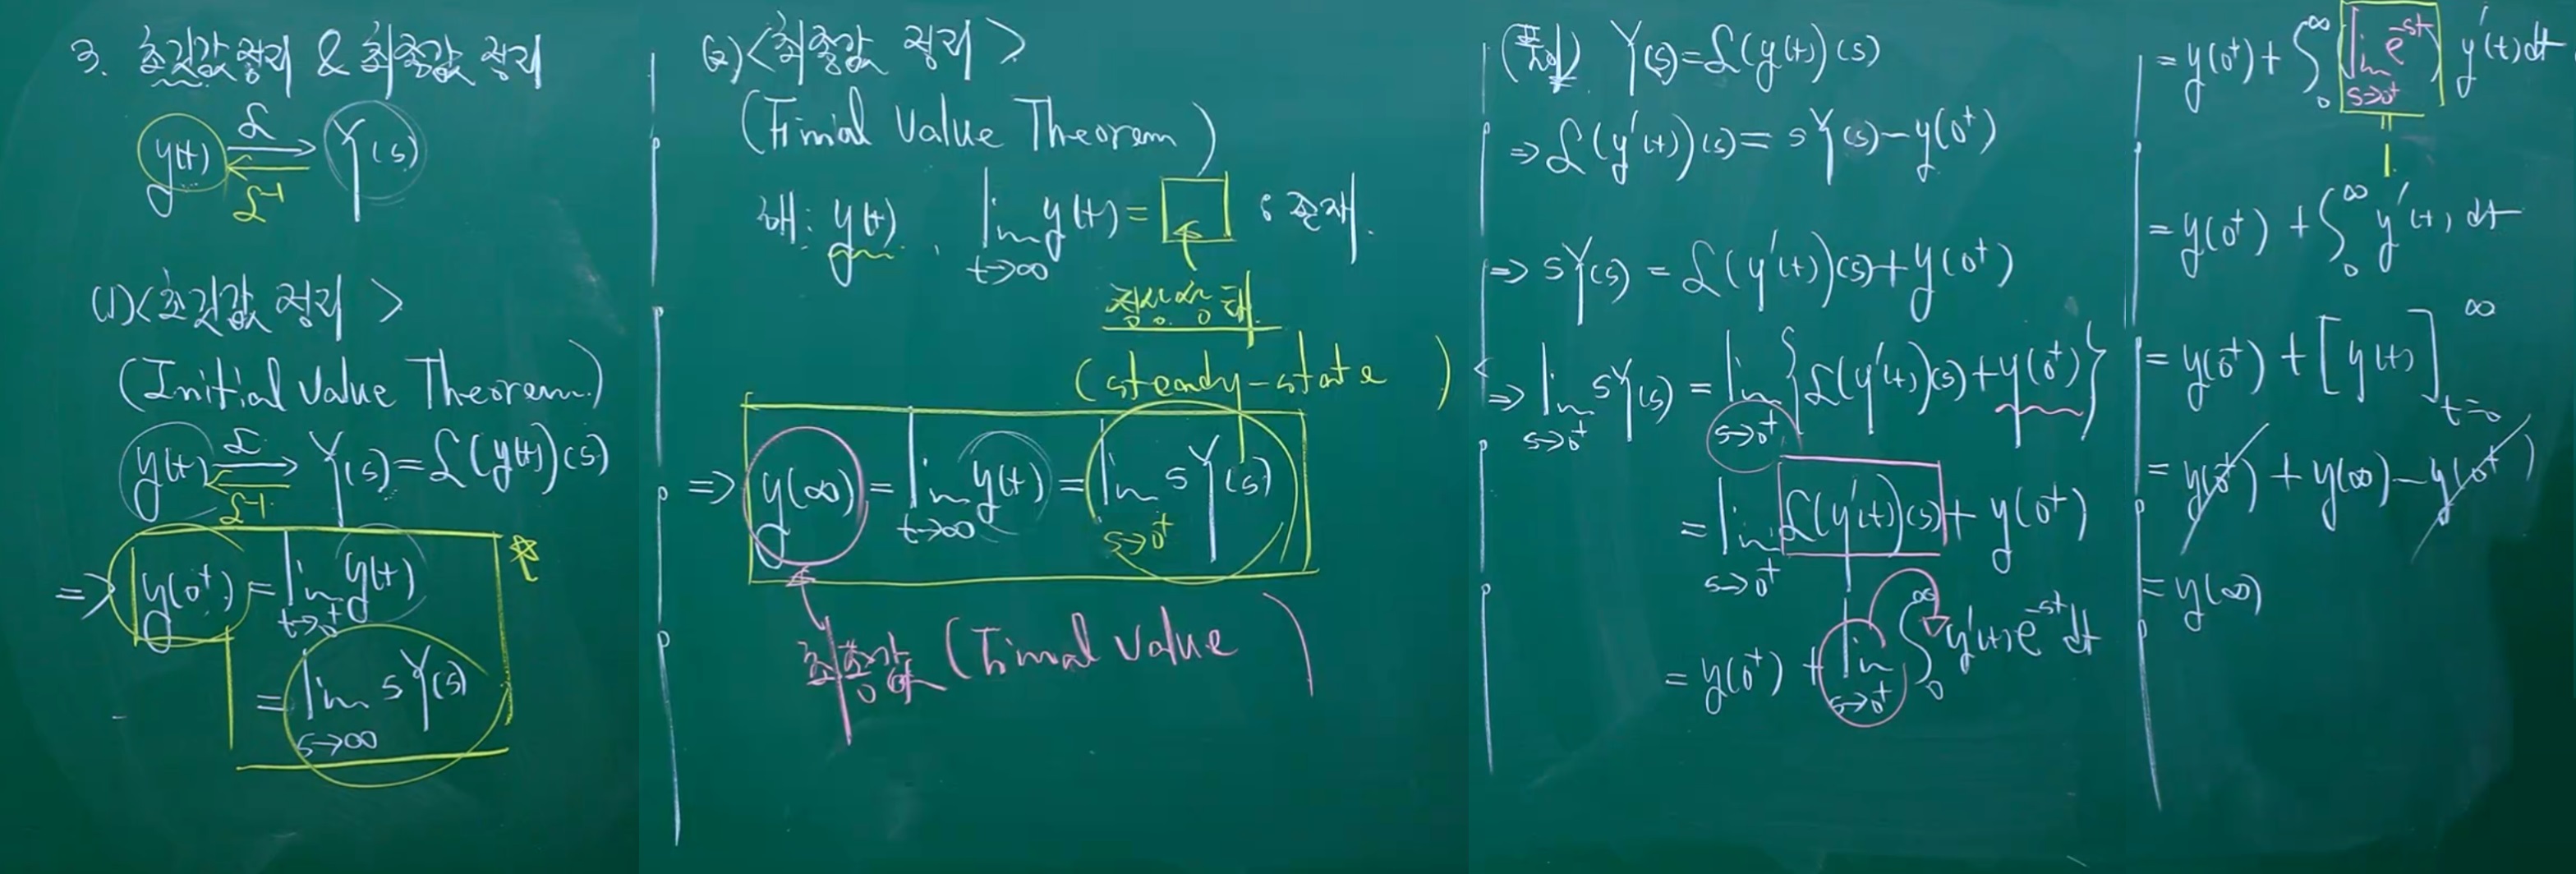 3. 초기값 정리 & 최종값 정리
y(t) ⇄ Y(s)
ℒ
ℒ⁻¹
(1) <초기값 정리>
(Initial Value Theorem)
y(t) ⇄ Y(s) = ℒ(y(t))(s)
ℒ
ℒ⁻¹
⇒ y(0⁺) = lim_{t→0⁺} y(t)
= lim_{s→∞} sY(s)
(2) <최종값 정리>
(Final Value Theorem)
해: y(t), lim_{t→∞} y(t) = □ : 존재.
정상상태
(steady-state)
⇒ y(∞) = lim_{t→∞} y(t) = lim_{s→0⁺} sY(s)
최종값 (Final Value)
(풀이) Y(s) = ℒ(y(t))(s)
⇒ ℒ(y′(t))(s) = sY(s) − y(0⁺)
⇒ sY(s) = ℒ(y′(t))(s) + y(0⁺)
⇒ lim_{s→0⁺} sY(s) = lim_{s→0⁺} {ℒ(y′(t))(s) + y(0⁺)}
= lim_{s→0⁺} ℒ(y′(t))(s) + y(0⁺)
= y(0⁺) + lim_{s→0⁺} ∫₀^∞ y′(t)e^{−st} dt
= y(0⁺) + ∫₀^∞ (lim_{s→0⁺} e^{−st}) y′(t) dt
= y(0⁺) + ∫₀^∞ y′(t) dt
= y(0⁺) + [y(t)]_{t=0}^∞
= y(0⁺) + y(∞) − y(0⁺)
= y(∞)